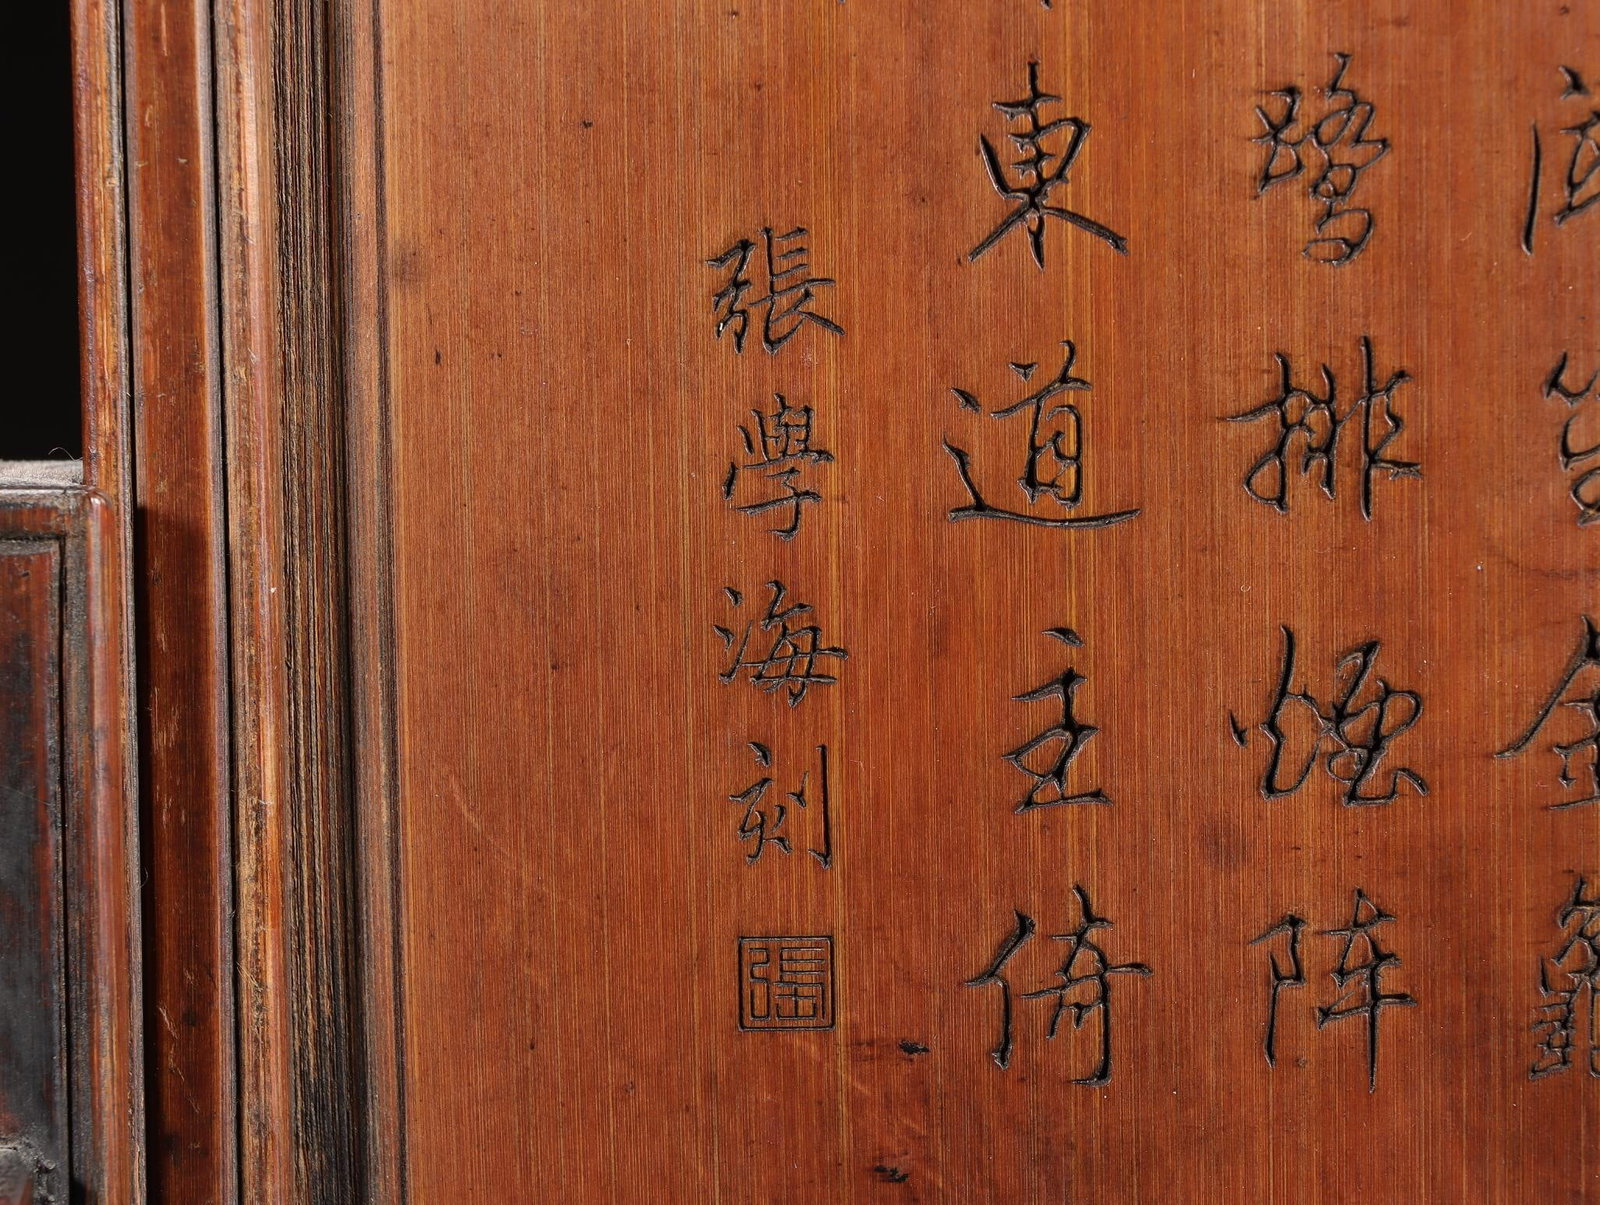 鷺排煙陣
東道主倚
張學海刻
張